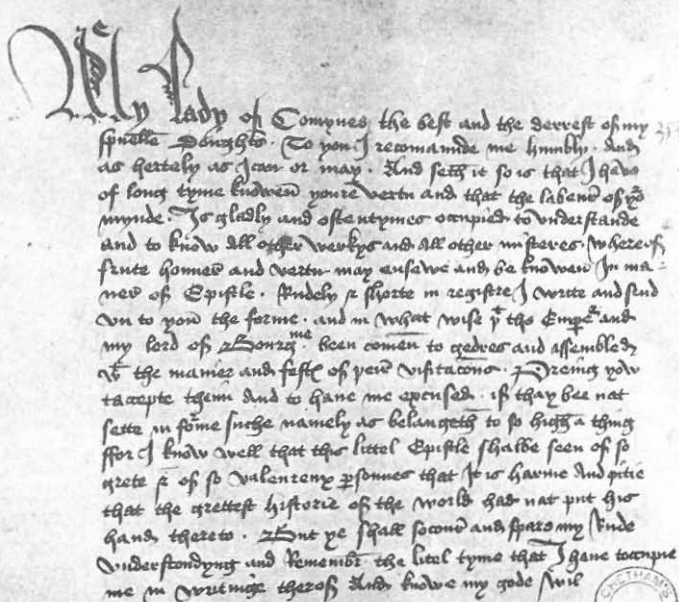 My lady of Comynes the best and the derrest of my
spũelle Doughtr̃. To you I recomaunde me humbly. And
as hertely as I can or may. And seth it so is that I have
of long tyme knowen youre vertu and that the labeur of yor
mynde. Is gladly and oftentymes occupied to vnderstande
and to know all other werkys and all other misteres. Whereof
frute honner and vertu may ensewe and be knowen In ma-
ner of Epistle. Rudely & shorte in registre I write and send
vn to you the forme. and in what wise yt the Emper and
my lord of Bourgme been comen to gedres and assembled
wt the manier and festes of peur visitacons. Preing yow
taccepte theim and to have me excused. if thay bee nat
sette in forme suche namely as belangeth to so high a thing
ffor I know well that this littel Epistle shalbe seen of so
grete & of so valeureux personnes that It is harme and pitie
that the grettest historie of the world had nat put his
hand thereto. But ye shall socour and spare my Rude
vnderstondyng and Remembr the litel tyme that I have toccupie
me in writinge therof And knowe my gode wil
CHETHAM'S